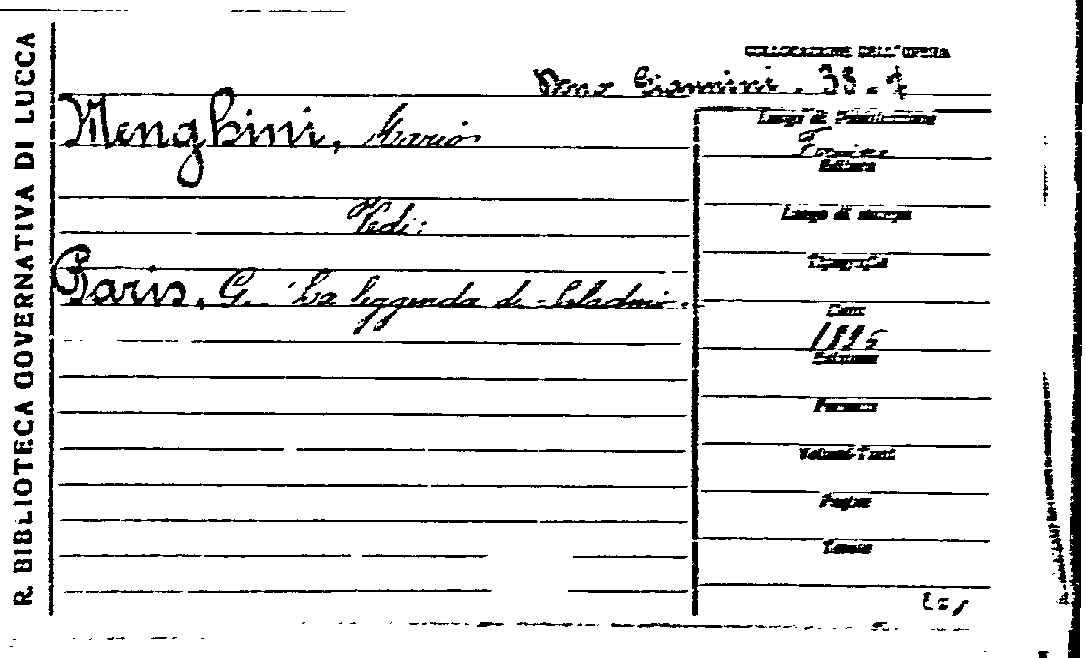 R. BIBLIOTECA GOVERNATIVA DI LUCCA
COLLOCAZIONE DELL'OPERA
Dono Giannini. 33.
Menghini, Mario
Luogo di Pubblicazione
Editore
Vedi:
Luogo di stampa
Tipografia
Paris, G. La leggenda di Saladino.
Data
1896
Edizione
Formato
Volumi-Tomi
Pagine
Tavole